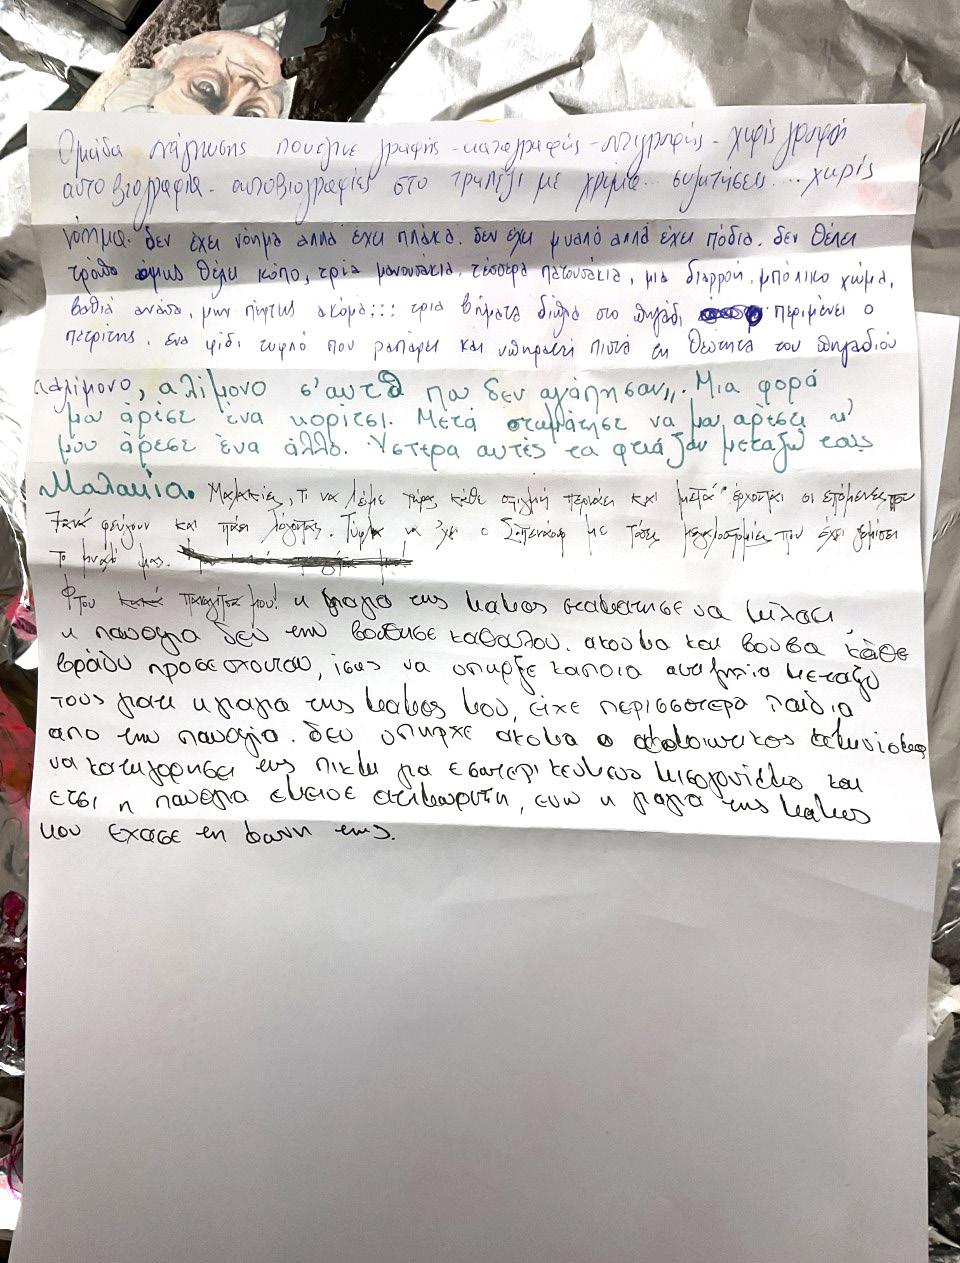 Ομάδα γραφής - καταγραφής - χωρίς γραφή
αυτοβιογραφία - αυτοβιογραφίες στο τραπέζι με χρήμα... συζητήσεις.... χωρίς
νόημα. δεν έχει νόημα αλλά έχει πλάκα. δεν έχει μυαλό αλλά έχει πόδια. δεν θέλει
όμως θέλει κόπο, τρία μανουσάκια, τέσσερα πατουσάκια, μια διαρροή, μπόλικο χώμα,
βαθιά ανάσα, μην πέφτεις ακόμα!!! τρια βήματα δίπλα στο πηγάδι περιμένει ο
πετρίτης. ένα φίδι τυφλό που ραπάρει και υπηρετεί πιστά τη θεότητα του πηγαδιού
αλίμονο, αλίμονο σ' αυτά που δεν αγάπησαν,,. Μια φορά
μου άρεσε ένα κορίτσι. Μετά σταμάτησε να μου αρέσει κ'
μου άρεσε ένα άλλο. Ύστερα αυτές τα φτιάξαν μεταξύ τους
Μαλακία. Μαλακίες, τι να λέμε τώρα, κάθε στιγμή περνάει και μετά έρχονται οι επόμενες που
ξανά φεύγουν και πάει λέγοντας. να 'χει ο Σοπενάουρ με τόσες που έχει γεμίσει
το μυαλό μας.
Φτου παναγίτσα μου! η γιαγιά της μαμάς σταμάτησε να μιλάει
η παναγία δεν την βοήθησε καθόλου. ακόμα και βουβά κάθε
βράδυ προσεύχονταν, ίσως να υπήρξε κάποια αντιζηλία μεταξύ
τους γιατί η γιαγιά της μαμάς μου, είχε περισσότερα παιδιά
από την παναγία. δεν υπήρχε ακόμα ο φεμινισμός
να κατηγορήσει της πικρή για εσωτερικευμένο μισογυνισμό και
έτσι η παναγία έμεινε ατιμώρητη, ενώ η γιαγιά της μαμάς
μου έχασε τη φωνή της.